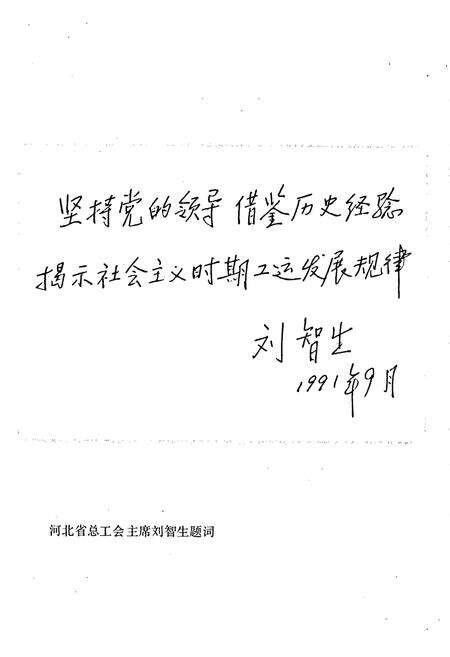 坚持党的领导 借鉴历史经验
揭示社会主义时期工运发展规律
刘智生
1991年9月
河北省总工会主席刘智生题词